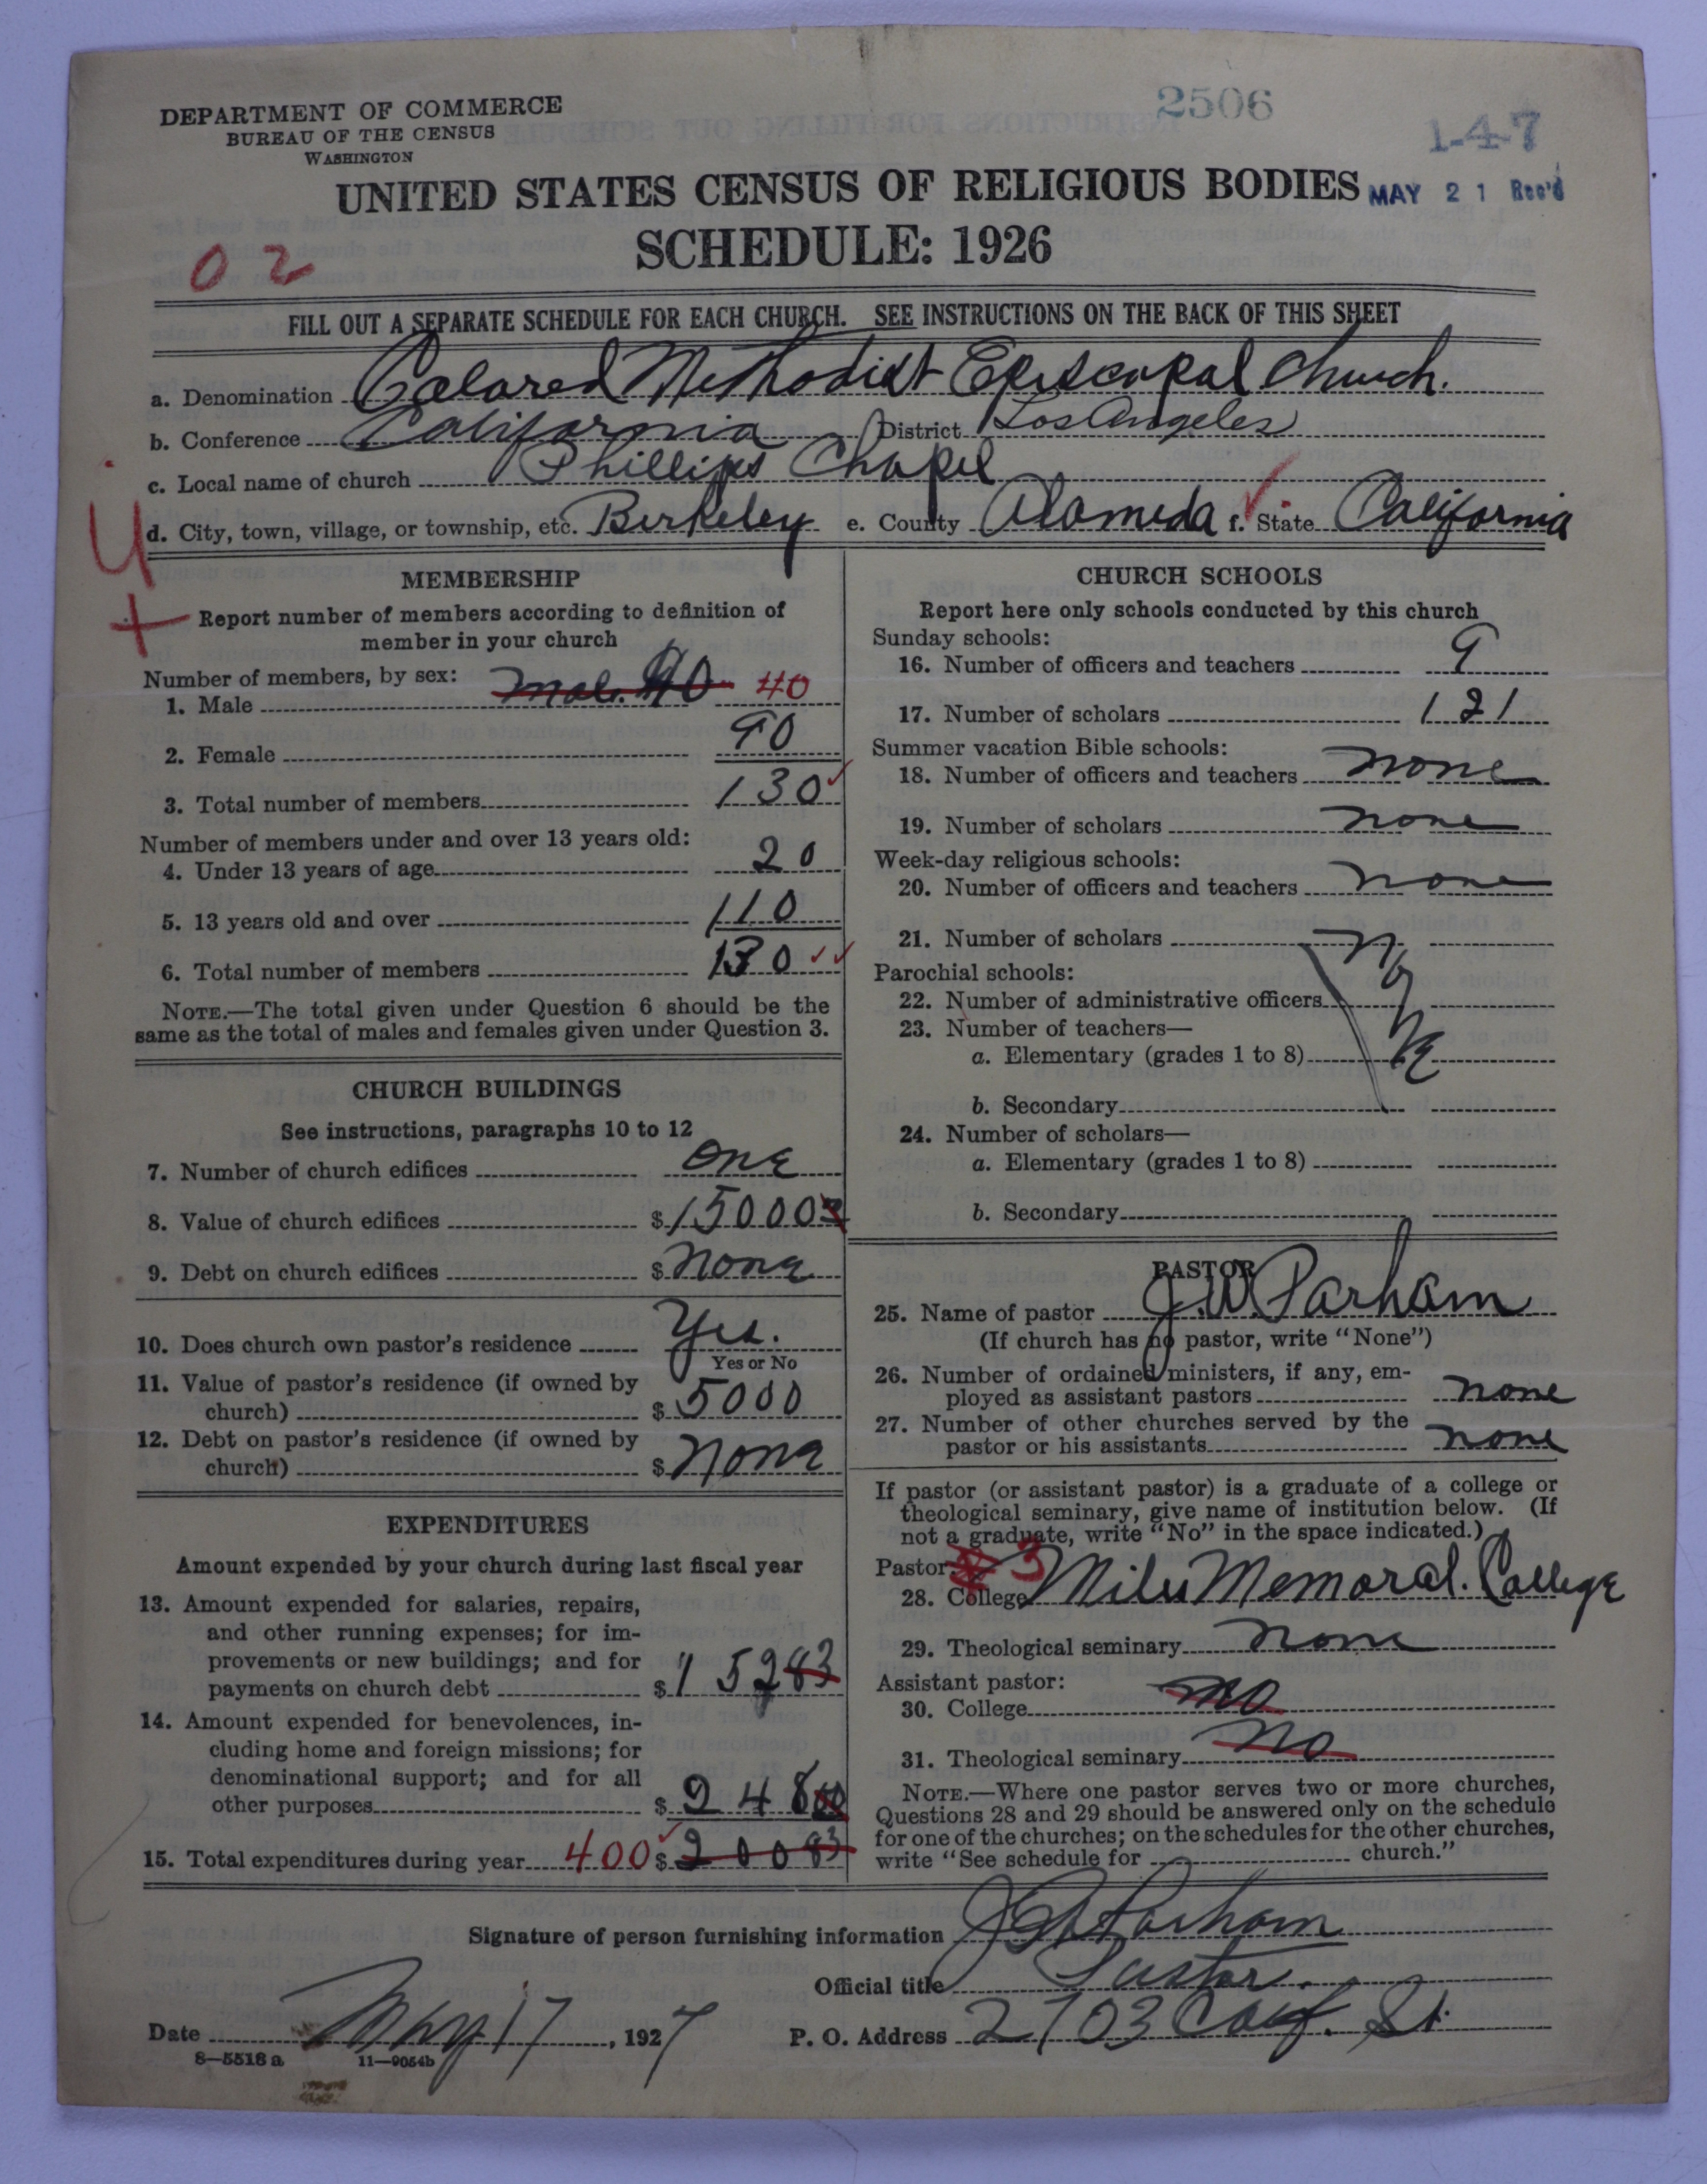 2506
DEPARTMENT OF COMMERCE
BUREAU OF THE CENSUS
WASHINGTON
1-4-7
UNITED STATES CENSUS OF RELIGIOUS BODIES
MAY 21 Rec'd
SCHEDULE: 1926
02
FILL OUT A SEPARATE SCHEDULE FOR EACH CHURCH. SEE INSTRUCTIONS ON THE BACK OF THIS SHEET
a. Denomination Colored Methodist Episcopal Church.
b. Conference California District Los Angeles
c. Local name of church Phillips Chapel
d. City, town, village, or township, etc. Berkeley e. County Alameda f. State California
MEMBERSHIP
Report number of members according to definition of
member in your church
Number of members, by sex:
1. Male 40 40
2. Female 90
3. Total number of members 130
Number of members under and over 13 years old:
4. Under 13 years of age 20
5. 13 years old and over 110
6. Total number of members 130
NOTE.—The total given under Question 6 should be the
same as the total of males and females given under Question 3.
CHURCH BUILDINGS
See instructions, paragraphs 10 to 12
7. Number of church edifices one
8. Value of church edifices $15000
9. Debt on church edifices $ none
10. Does church own pastor's residence Yes.
Yes or No
11. Value of pastor's residence (if owned by
church) $5000
12. Debt on pastor's residence (if owned by
church) $ None
EXPENDITURES
Amount expended by your church during last fiscal year
13. Amount expended for salaries, repairs,
and other running expenses; for im-
provements or new buildings; and for
payments on church debt $152 83
14. Amount expended for benevolences, in-
cluding home and foreign missions; for
denominational support; and for all
other purposes $248 00
15. Total expenditures during year 400 $200 83
CHURCH SCHOOLS
Report here only schools conducted by this church
Sunday schools:
16. Number of officers and teachers 9
17. Number of scholars 121
Summer vacation Bible schools:
18. Number of officers and teachers none
19. Number of scholars none
Week-day religious schools:
20. Number of officers and teachers none
21. Number of scholars
Parochial schools:
22. Number of administrative officers
23. Number of teachers—
a. Elementary (grades 1 to 8)
b. Secondary
24. Number of scholars—
a. Elementary (grades 1 to 8)
b. Secondary
PASTOR
25. Name of pastor J. W. Parham
(If church has no pastor, write "None")
26. Number of ordained ministers, if any, em-
ployed as assistant pastors none
27. Number of other churches served by the
pastor or his assistants none
If pastor (or assistant pastor) is a graduate of a college or
theological seminary, give name of institution below. (If
not a graduate, write "No" in the space indicated.)
Pastor: 3
28. College Miles Memoral. College
29. Theological seminary none
Assistant pastor:
30. College no
31. Theological seminary no
NOTE.—Where one pastor serves two or more churches,
Questions 28 and 29 should be answered only on the schedule
for one of the churches; on the schedules for the other churches,
write "See schedule for church."
Signature of person furnishing information J W Parham
Official title Pastor.
Date May 17, 1927 P. O. Address 2703 Calif. St.
8—5518 a 11—9054b